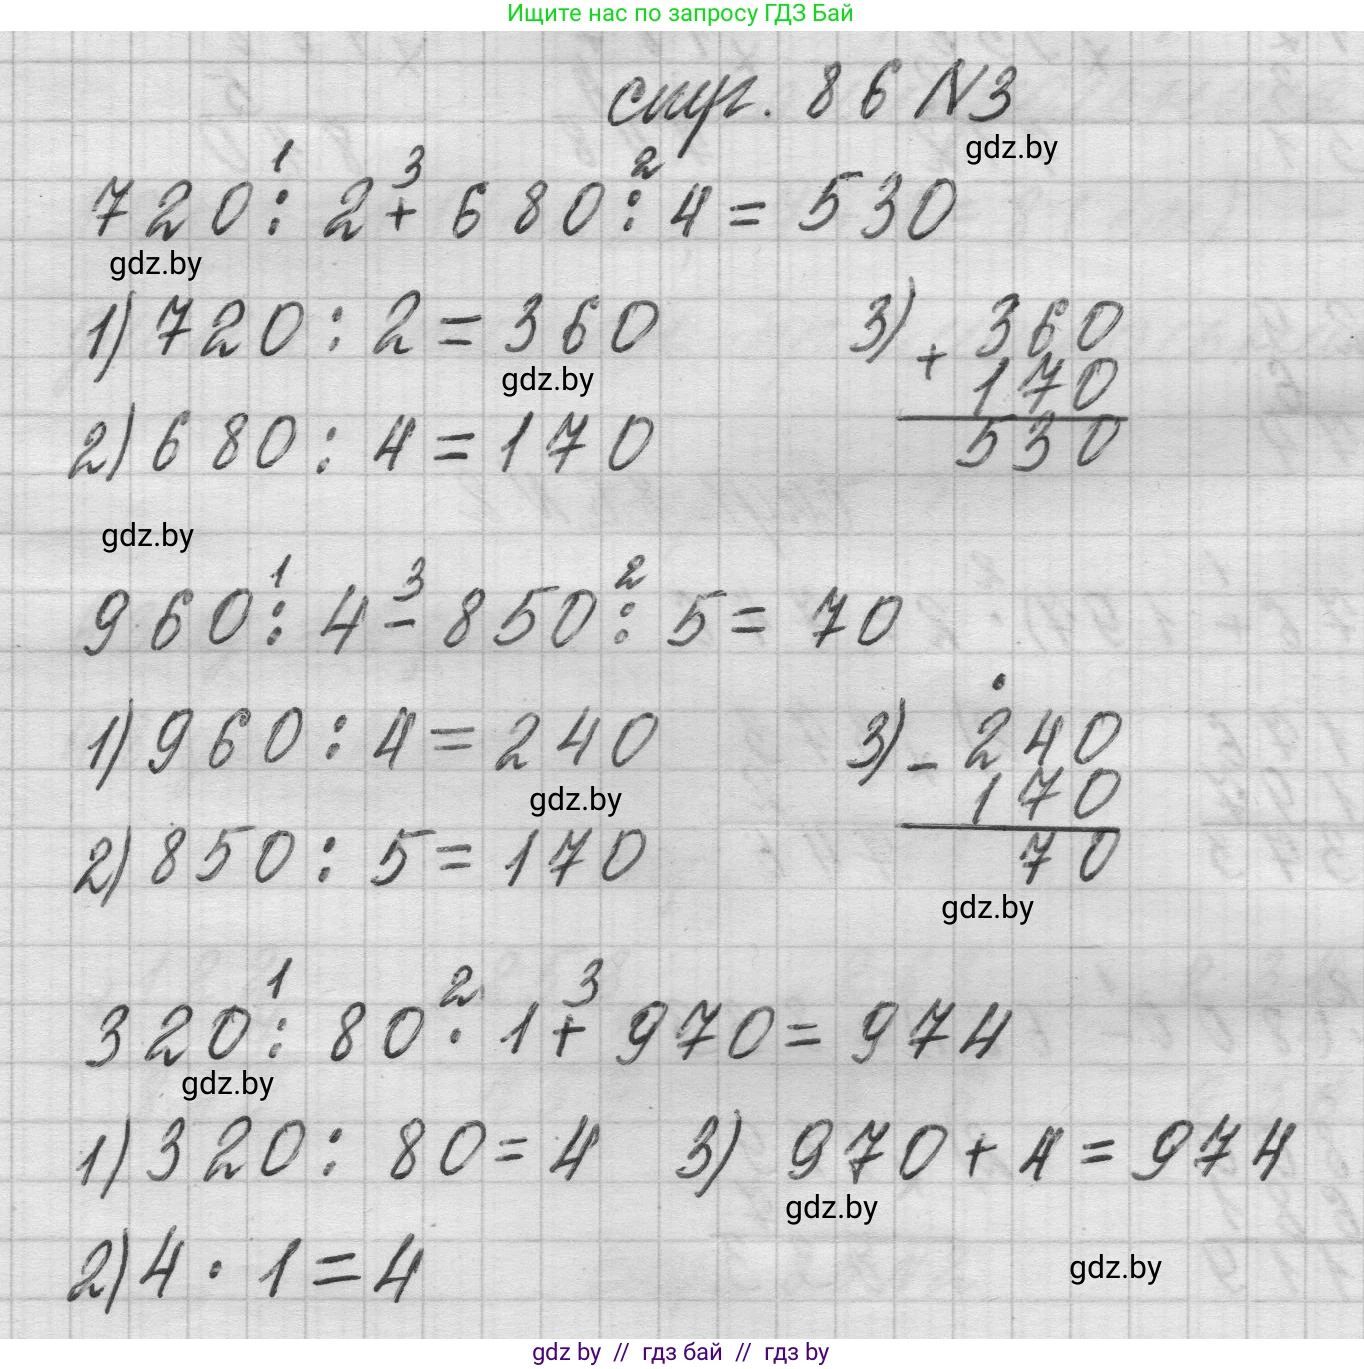 Ищите нас по запросу ГДЗ Бай
стр. 86 №3
gdz.by
1 3 2
720 : 2 + 680 : 4 = 530
gdz.by
1) 720 : 2 = 360
gdz.by
2) 680 : 4 = 170
3) + 360
170
530
gdz.by
1 3 2
960 : 4 - 850 : 5 = 70
1) 960 : 4 = 240
gdz.by
2) 850 : 5 = 170
3) - 240
170
70
gdz.by
1 2 3
320 : 80 · 1 + 970 = 974
gdz.by
1) 320 : 80 = 4
3) 970 + 4 = 974
gdz.by
2) 4 · 1 = 4
gdz.by
gdz by // гдз бай // гдз by